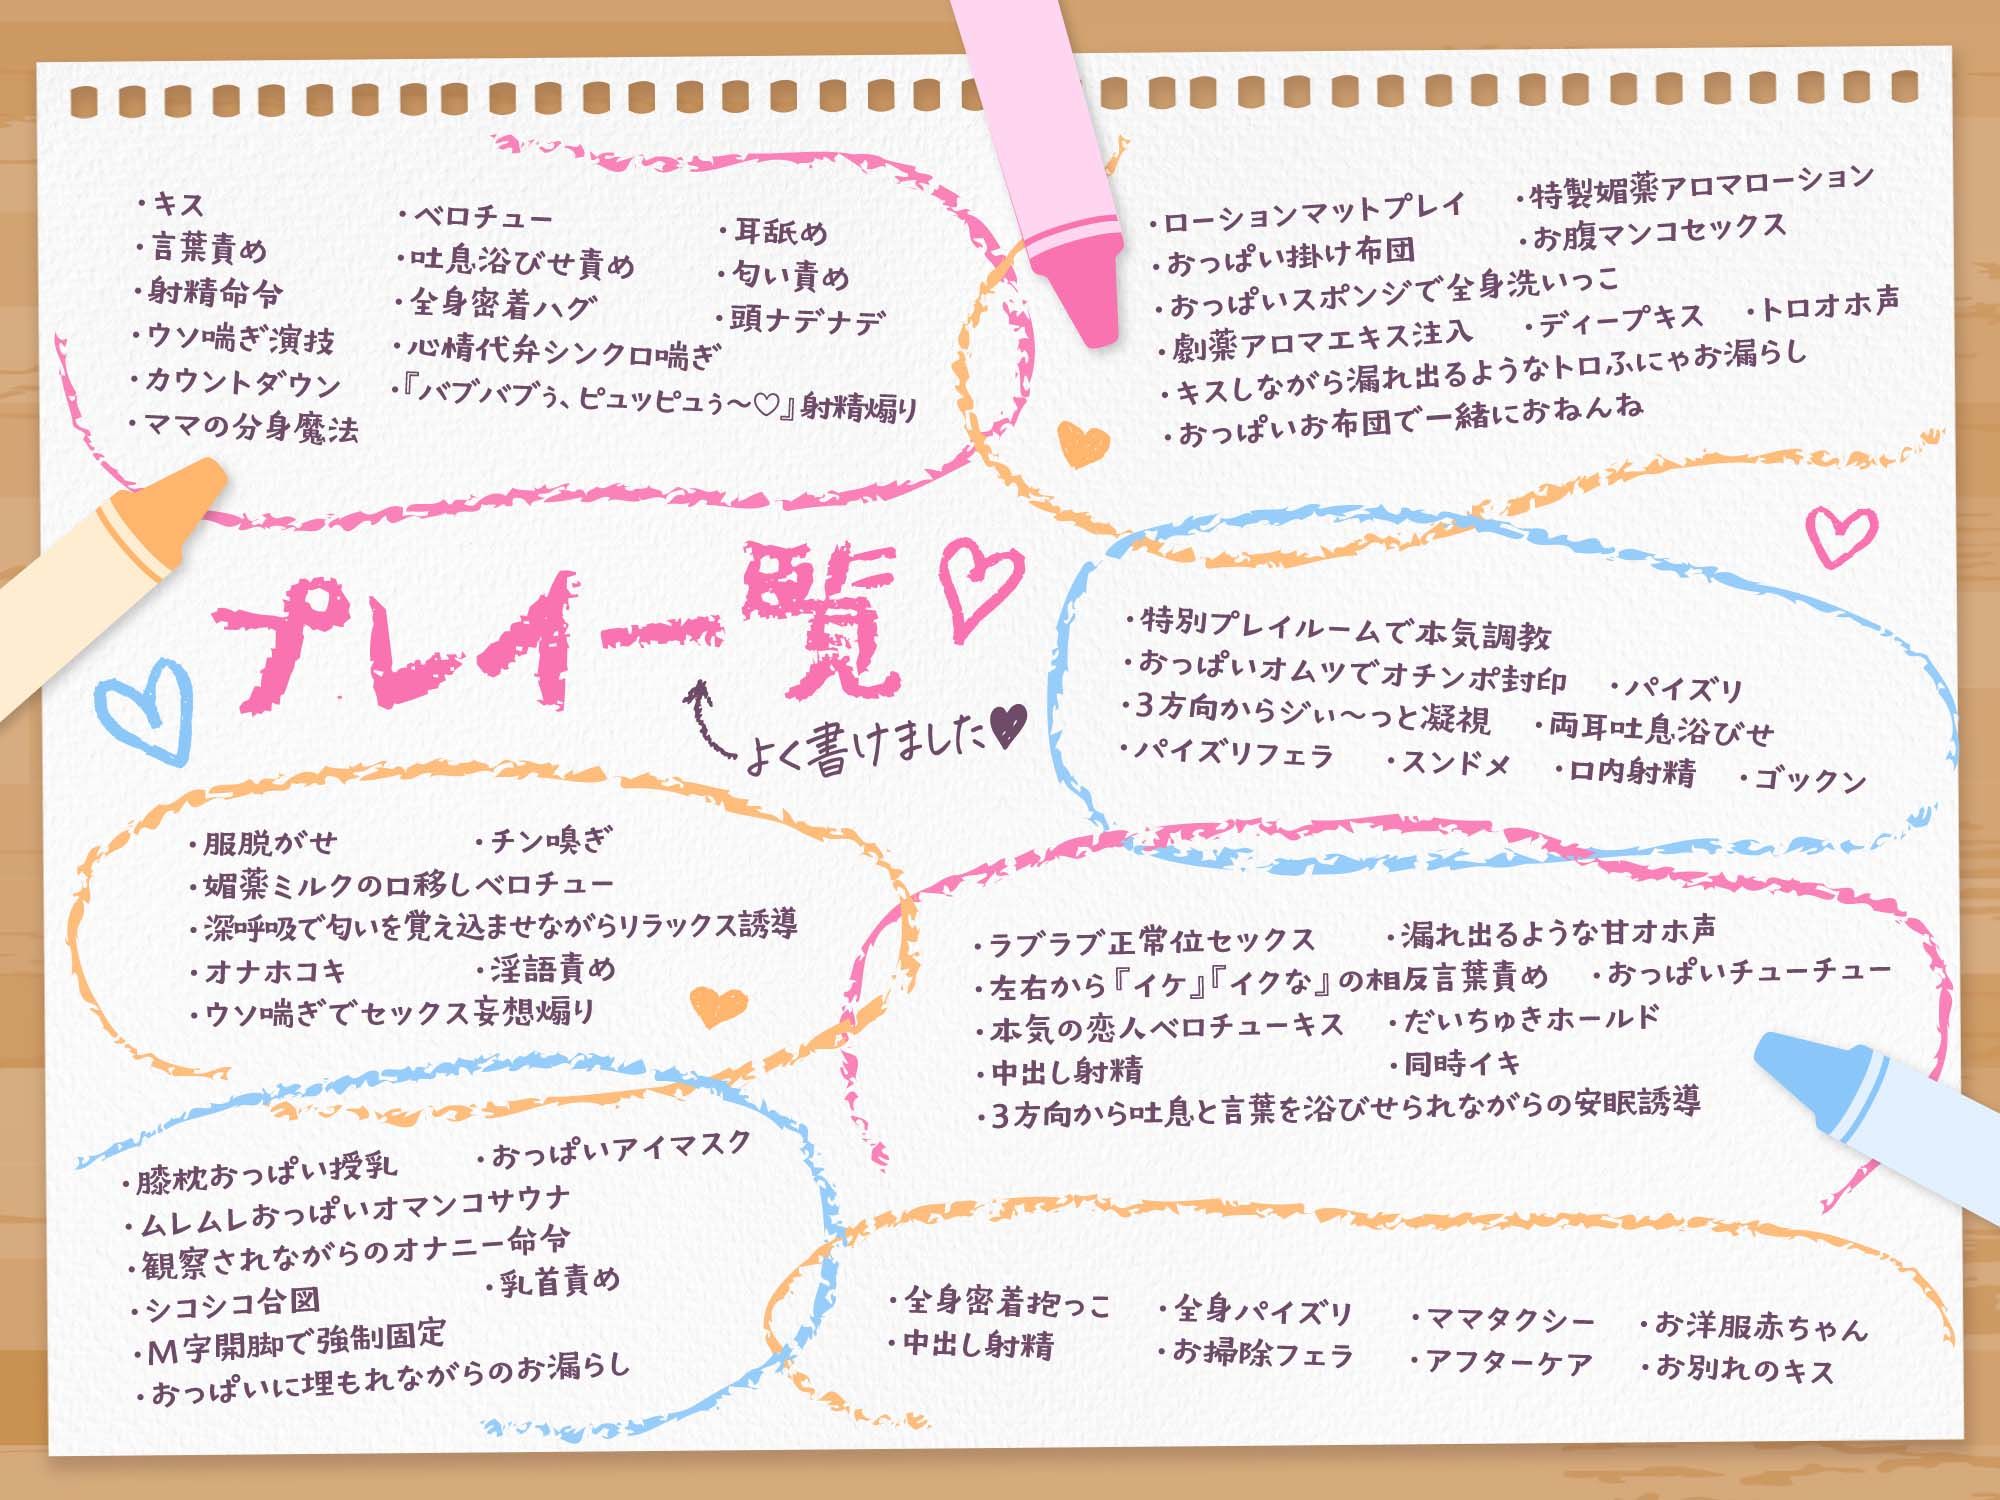 ・キス
・言葉責め
・射精命令
・ウソ喘ぎ演技
・カウントダウン
・ママの分身魔法
・ベロチュー
・吐息浴びせ責め
・全身密着ハグ
・心情代弁シンクロ喘ぎ
・『バブバブぅ、ピュッピュぅ〜♡』射精煽り
・耳舐め
・匂い責め
・頭ナデナデ
・ローションマットプレイ ・特製媚薬アロマローション
・おっぱい掛け布団 ・お腹マンコセックス
・おっぱいスポンジで全身洗いっこ
・劇薬アロマエキス注入 ・ディープキス ・トロオホ声
・キスしながら漏れ出るようなトロふにゃお漏らし
・おっぱいお布団で一緒におねんね
プレイ一覧♡
よく書けました♥
・特別プレイルームで本気調教
・おっぱいオムツでオチンポ封印 ・パイズリ
・3方向からジぃ〜っと凝視 ・両耳吐息浴びせ
・パイズリフェラ ・スンドメ ・口内射精 ・ゴックン
・服脱がせ ・チン嗅ぎ
・媚薬ミルクの口移しベロチュー
・深呼吸で匂いを覚え込ませながらリラックス誘導
・オナホコキ ・淫語責め
・ウソ喘ぎでセックス妄想煽り
・ラブラブ正常位セックス ・漏れ出るような甘オホ声
・左右から『イケ』『イクな』の相反言葉責め ・おっぱいチューチュー
・本気の恋人ベロチューキス ・だいちゅきホールド
・中出し射精 ・同時イキ
・3方向から吐息と言葉を浴びせられながらの安眠誘導
・膝枕おっぱい授乳 ・おっぱいアイマスク
・ムレムレおっぱいオマンコサウナ
・観察されながらのオナニー命令
・シコシコ合図 ・乳首責め
・M字開脚で強制固定
・おっぱいに埋もれながらのお漏らし
・全身密着抱っこ ・全身パイズリ ・ママタクシー ・お洋服赤ちゃん
・中出し射精 ・お掃除フェラ ・アフターケア ・お別れのキス